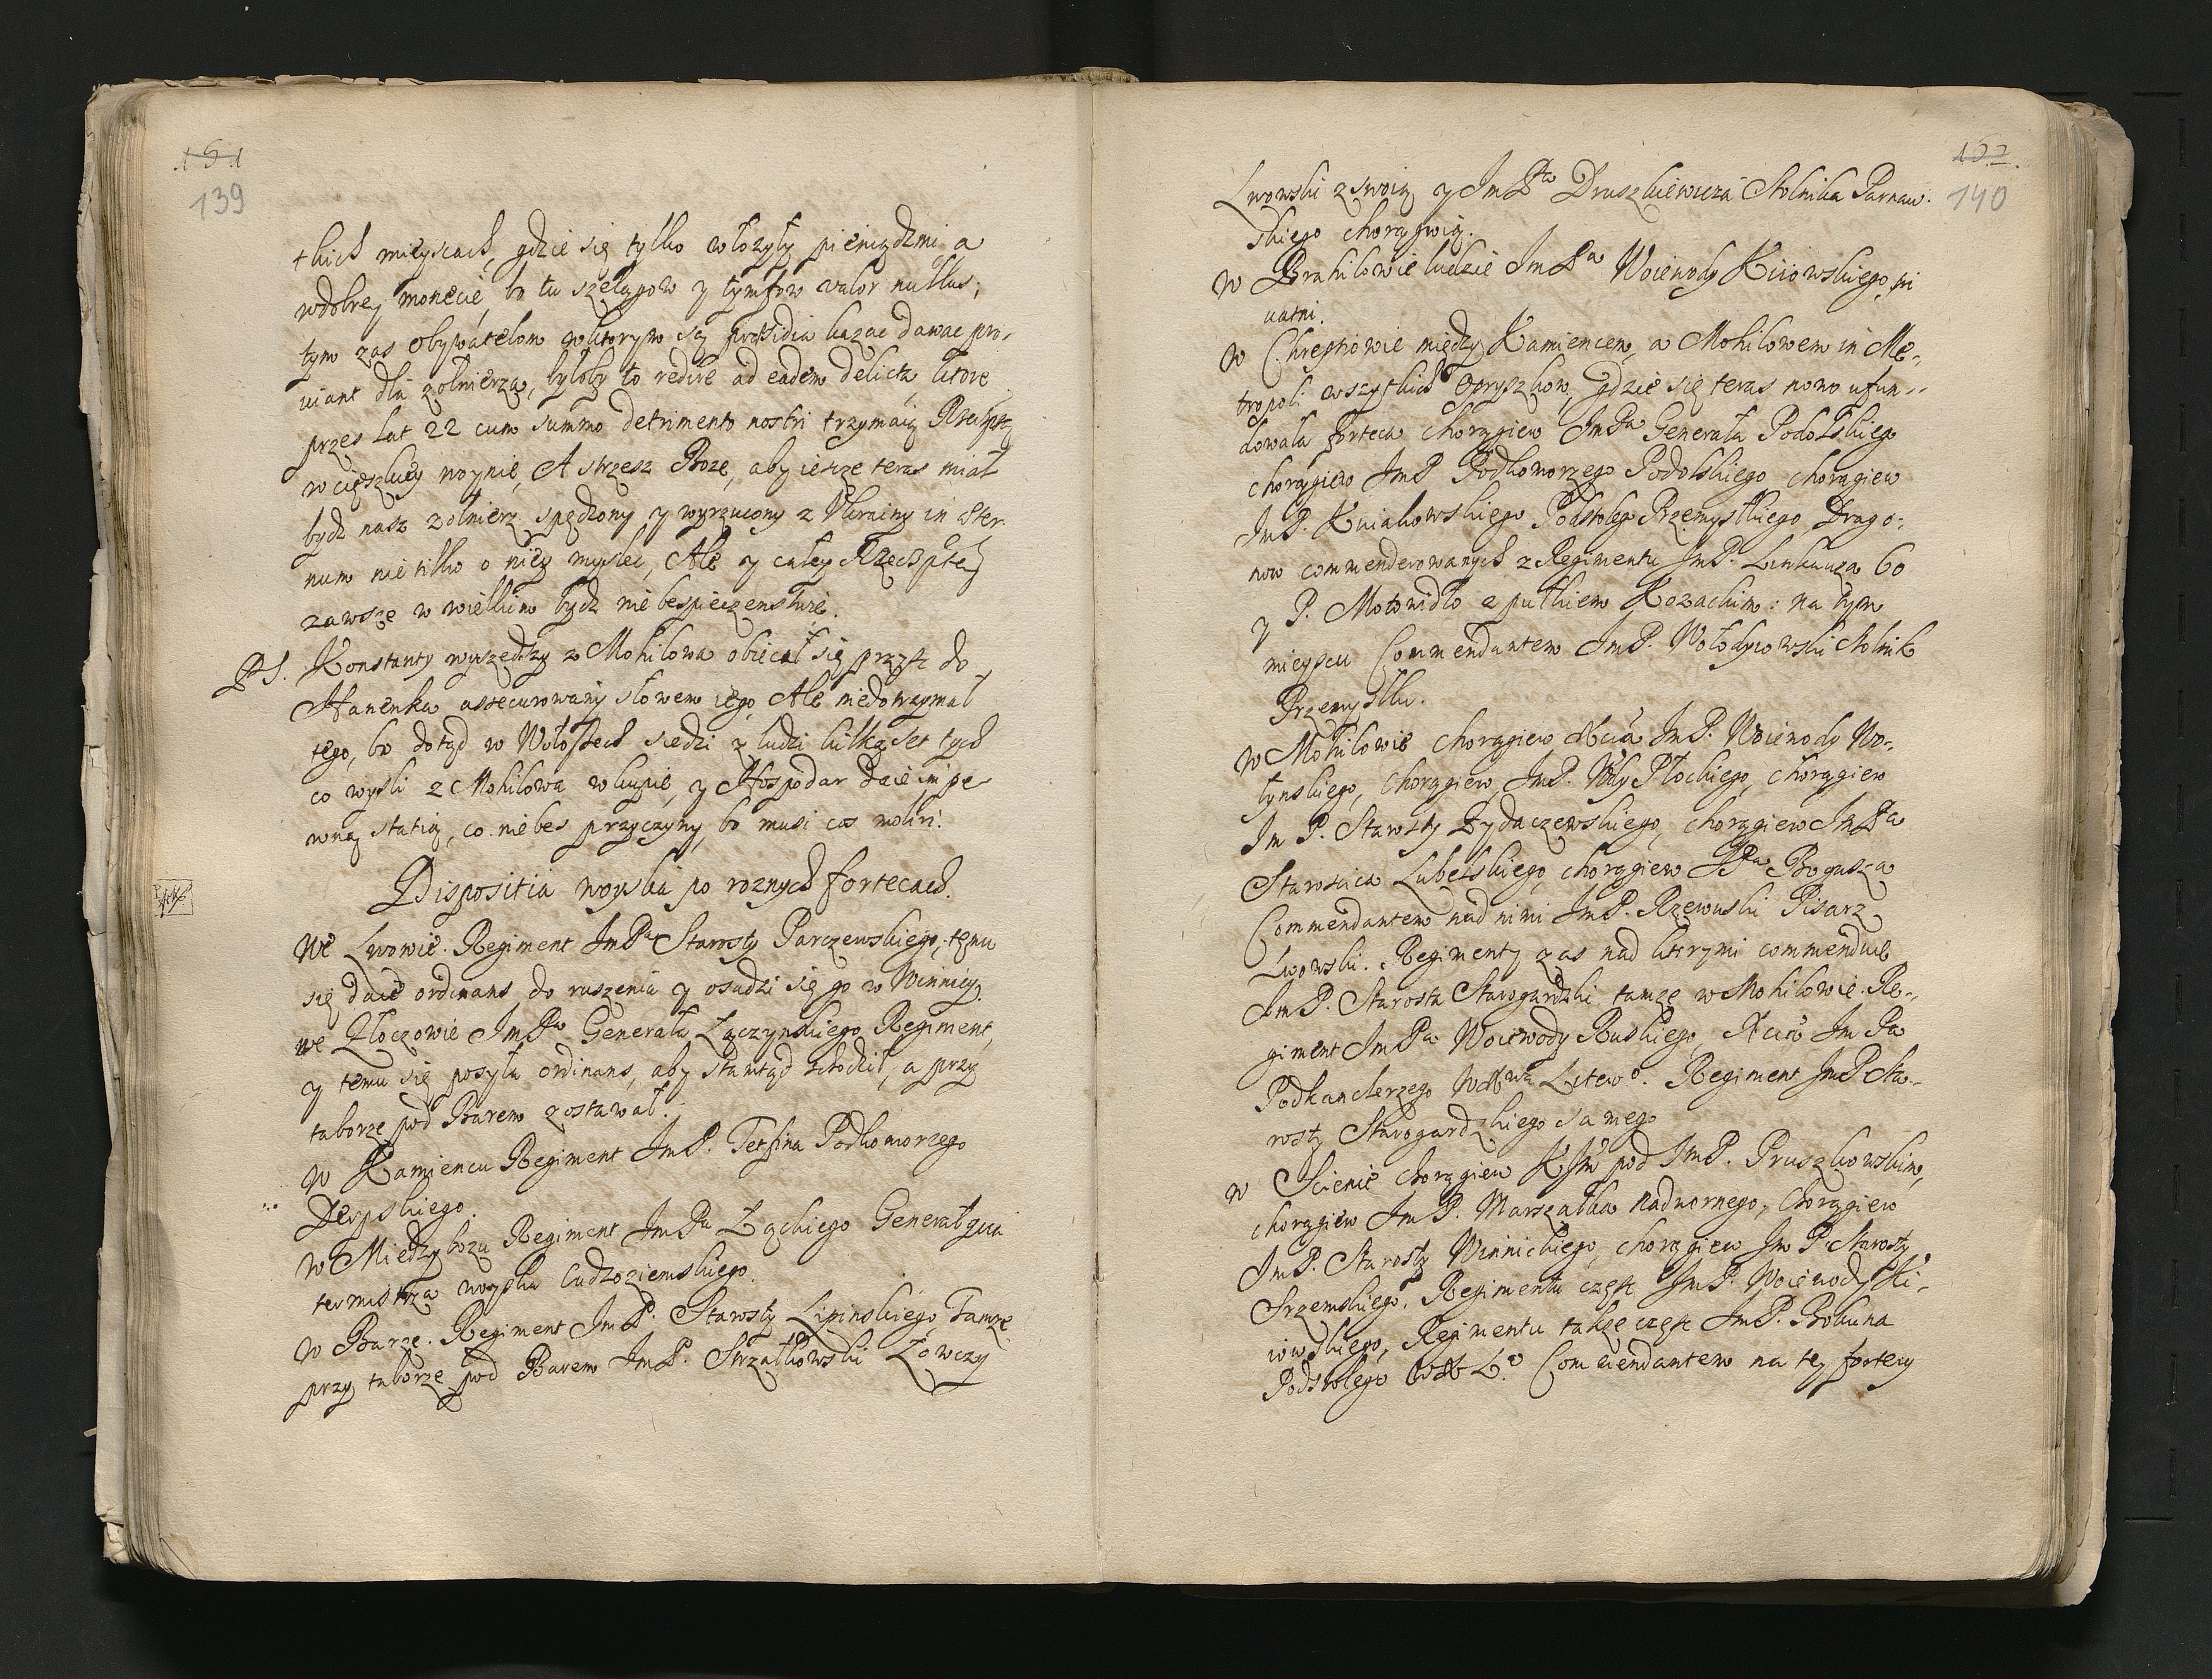 151
139
tkich mieyscach, gdzie się tylko włozyły pieniądzmi a
wdobrej monecie, bo tu szelągow y tymfow valor nullus;
tym zas Obywatelom wktorym są presidia kazac dawac pro-
uiant dla zołnierza, byłoby to redire ad eadem delicta, ktore
przes lat 22 cum summo detrimento nostri trzymaią Rzeczptą
w cięszkiey woynie, A strzesz Boze, aby iesce teras miał
bydz nasz zołnierz spędzony y wyrzucony z Ukrainy in eter-
num nie tilko o niey myslec, Ale y całey Rzeczptey
zawsze w wielkim bydz niebespieczenstwie.
PS. Konstanty wyszedszy z Mohilowa obiecał się przyść do
Hanenka assecurowany słowem iego, Ale niedotrzymał
tego, bo dotąd w Wołoszech siedzi z ludzi kilkąset tych
co wyśli z Mohilowa wkupie, y Hospodar daie im pe-
wną statią, co nie bes przyczyny, bo musi cos moliri.
Dispositia woyska po roznych fortecach.
We Lwowie. Regiment ImPa Starosty Parczewskiego, temu
się daie ordinans do ruszenia y osadzi się go w Winnicy.
we Złoczowie ImPa Generała Łączynskiego Regiment,
y temu się posyła ordinans, aby stamtąd zchodził, a przy
taborze pod Barem zostawał.
w Kamiencu Regiment ImP. Tetfina Podkomorzego
Derpskiego.
w Miedzybozu Regiment ImPa Łąckiego Generał qua
termistrza woyska Cudzoziemskiego.
w Barze. Regiment ImP. Starosty Lipinskiego Tamze
przy taborze pod Barem ImP. Strzałkowski Łowczy
152
140
Lwowski z swoią y ImPa Druszkiewicza Stolnika Parnaw-
skiego chorągwią.
w Brahiłowie ludzie ImPa Woiewody Kiiowskiego, pri
uatni.
w Chreptiowie między Kamiencem, a Mohilowem in Me-
tropoli wszytkich Opryszkow, gdzie się teras nowo ufun-
dowała forteca chorągiew ImPa Generała Podolskiego
chorągiew ImP Podkomorzego Podolskiego chorągiew
ImP. Kuiakowskiego Podstolego Przemyslkiego, Drago-
now commenderowanych z Regimentu ImP. Linkauza 60
y P. Motowidło z pułkiem Kozackim: na tym
mieyscu Commendantem ImP. Wołodyiowski stolnik
Przemyslki.
w Mohilowie chorągiew Xcia ImP. Woiewody Wo-
łynskiego, chorągiew, ImP. Wdy Płockiego, chorągiew
Im P. Starosty Zydaczewskiego, chorągiew ImPa
Starościca Lubelskiego, chorągiew PPa Bogusza
Commendantem nad nimi ImP. Rzewuski Pisarz
Lwowski. Regimenty zas nad ktorymi commenduie
ImP. Starosta Starogardzki tamze w Mohilowie. Re-
giment ImPa Woiewody Ruskiego, Xcia Im Pa
Podkanclerzego WXwa Litewo. Regiment ImP Sta-
rosty Starogardzkiego samego
w Scienie chorągiew KJM pod ImP. Pruszkowskim,
chorągiew ImP. Marszałka nadwornego, chorągiew
ImP. Starosty Winnickiego, chorągiew Im P. Starosty
Srzemskiego. Regimentu część ImP. Woiewody Ki-
iowskiego, Regimentu takze część ImP. Bokuna
Podstolego WX Lo. Commendantem na tey fortecy